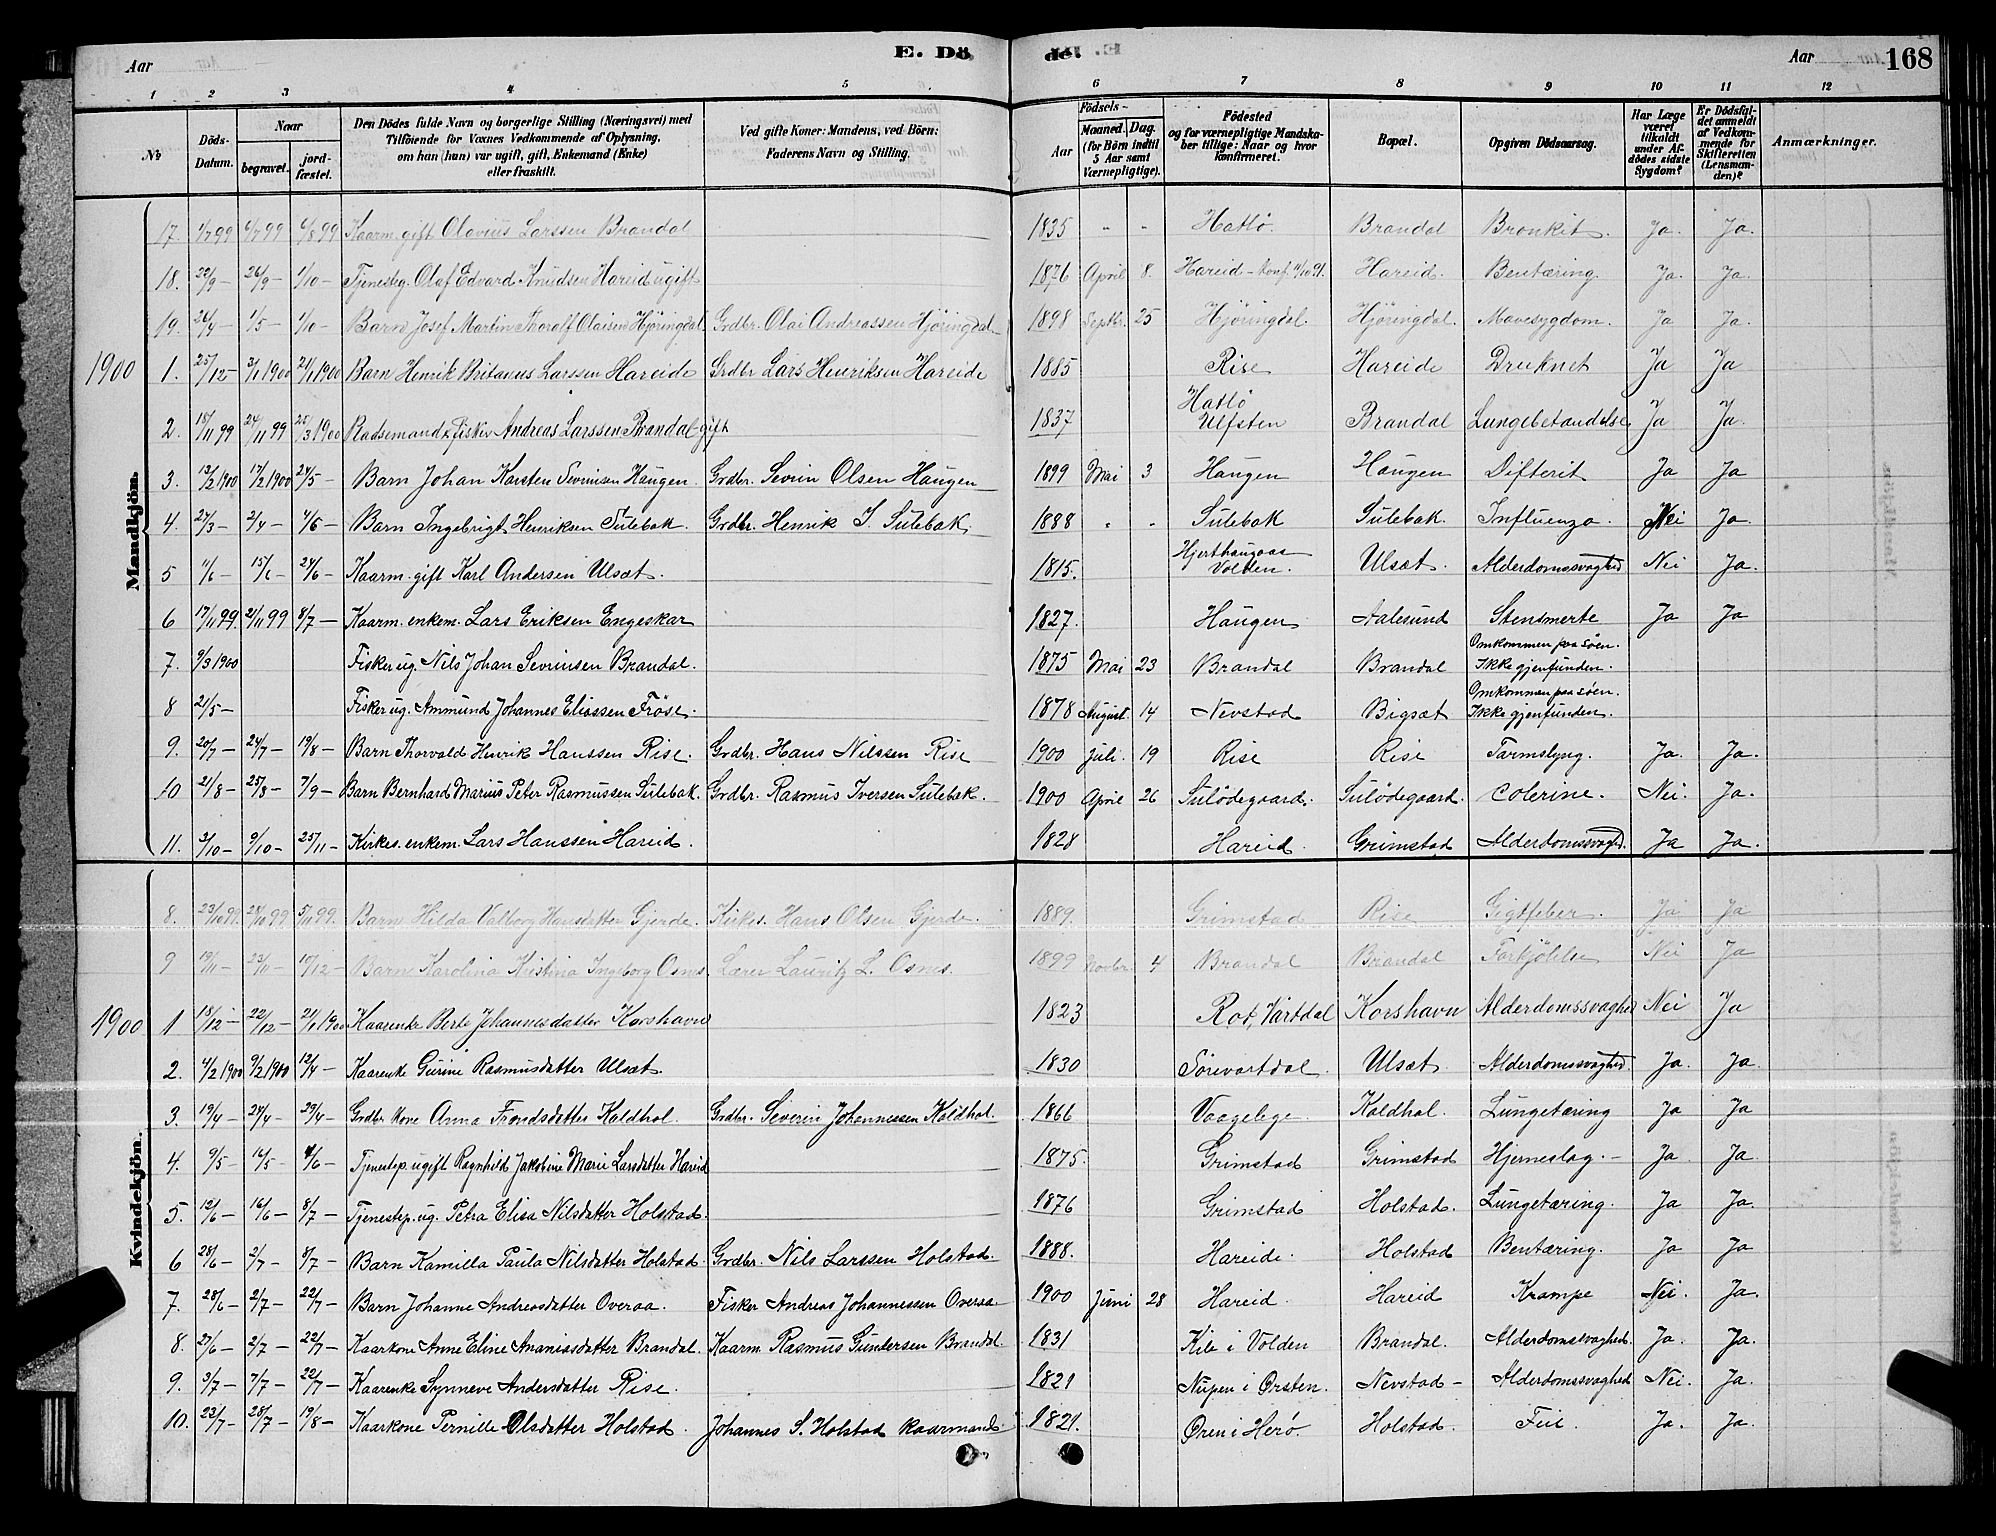 Aar E. Dö de. Aar 168
1 2 3 4 5 6 7 8 9 10 11 12
№ Döds-Datum. Naar begravet. jordfæstet. Den Dödes fulde Navn og borgerlige Stilling (Næringsvei) med Tilföiende for Voxnes Vedkommende af Oplysning, om han (hun) var ugift, gift, Enkemand (Enke) eller fraskilt. Ved gifte Koner: Mandens, ved Börn: Faderens Navn og Stilling. Födsels- Aar Maaned. Dag. (for Börn indtil 5 Aar samt Værnepligtige). Födested og for værnepligtige Mandskaber tillige: Naar og hvor konfirmeret. Bopæl. Opgiven Dödsaarsag. Har Læge været tilkaldt under Afdödes sidste Sygdom? Er Dödsfaldet anmeldt af Vedkommende for Skifteretten (Lensmanden)? Anmærkninger.
Mandkjön.
17. 1/7 99 6/7 99 6/8 99 Kaarm. gift Olavius Larssen Brandal 1835 " " Hatlö. Brandal Bronkit. Ja. Ja.
18. 22/9 – 26/9 – 1/10 – Tjenesteg. Olaf Edvard Knudsen Hareid ugift 1876 April 8. Hareid – Konf. 4/10 91. Hareid. Bentæring Ja. Ja.
19. 26/4 – 1/5 – 1/10 – Barn Josef Martin Thoralf Olaisen Hjöringdal Grdbr. Olai Andreassen Hjöringdal 1898 Septbr. 25 Hjöringdal. Hjöringdal. Mavesygdom. Ja Ja.
1900 1. 25/12 – 3/1 1900 21/1 1900 Barn Henrik Britanus Larssen Hareide Grdbr Lars Henriksen Hareide 1885 Rise Hareide Druknet Ja Ja
2. 18/11 99 24/11 99 25/3 1900 Radsemand & Fisker Andreas Larssen Brandal gift 1837 Hatlö Ulfsten Brandal Lungebetændelse Ja Ja.
3. 13/2 1900 17/2 1900 24/5 – Barn Johan Karsten Severinsen Haugen Grdbr. Sevrin Olsen Haugen 1899 Mai 3 Haugen Haugen Difterit Ja Ja
4. 27/3 – 2/4 – 4/6 – Barn Ingebrigt Henriksen Sulebak. Grdbr. Henrik I. Sulebak. 1888 " " Sulebak Sulebak. Influenza. Nei Ja.
5 11/6 – 15/6 – 24/6 – Kaarm. gift Karl Andersen Ulsæt. 1815. Hjerthaugaas Volden. Ulsæt. Alderdomssvaghed Nei Ja.
6 17/11 99. 21/11 99 8/7 – Kaarm. enkem. Lars Eriksen Engeskar 1827. Haugen Aalesund Stensmerte Ja Ja
7. 9/3 1900 Fisker ug. Nils Johan Sevrinsen Brandal. 1875 Mai 23 Brandal Brandal Omkommen paa söen. Ikke gjenfunden.
8 21/5 – Fisker ug. Ammund Johannes Eliassen Fröse. 1878 August. 14 Nevstad Bigsæt Omkommen paa söen. Ikke gjenfunden.
9. 20/7 – 24/7 – 19/8 – Barn Thorvald Henrik Hanssen Rise. Grdbr. Hans Nilssen Rise 1900 Juli. 19 Rise Rise Tarmslyng. Ja. Ja.
10 21/8 – 25/8 – 7/9 – Barn Bernhard Marius Peter Rasmussen Sulebak. Grdbr. Rasmus Iversen Sulebak. 1900 April 26 Sulödegaard. Sulödegaard. Colerine. Nei. Ja.
11. 3/10 – 9/10 – 25/11 – Kirkes. enkem. Lars Hanssen Hareid. 1828 Hareid. Grimstad Alderdomssvaghed. Ja Ja.
Kvindekjön.
8. 23/10 99. 24/10 99 5/11 99. Barn Hilda Valborg Hansdatter Gjerde. Kirkes. Hans Olsen Gjerde. 1889. Grimstad Rise Gigtfeber. Ja Ja
9 19/11 – 23/11 – 10/12 – Barn Karolina Kristina Ingeborg Osnes. Lærer Lauritz L. Osnes. 1899 Novbr. 4 Brandal Brandal Forkjölelse Nei Ja
1900 1 18/12 – 22/12 – 21/1 1900 Kaarenke Berte Johannesdatter Korshavn 1823 Rot, Vartdal Korshavn Alderdomssvaghed Nei Ja
2. 4/2 1900 9/2 1900 12/4 – Kaarenke Gurine Rasmusdatter Ulsæt. 1830 Sörevartdal. Ulsæt. Alderdomssvaghed Ja. Ja.
3. 19/4 – 24/4 – 29/4 – Grdbr. Kone Anna Trondsdatter Kaldhol. Grdbr. Severin Johannessen Kaldhol. 1866 Vaagelege. Kaldhol. Lungetæring Ja Ja
4. 9/5 – 16/5 – 4/6 – Tjenestep. ugift Ragnhild Jakobine Marie Larsdatter Hareid 1875. Grimstad Grimstad Hjerneslag. – Ja. Ja
5. 12/6 – 16/6 – 8/7 – Tjenestep. ug. Petra Elisa Nilsdatter Holstad. 1876 Grimstad Holstad. Lungetæring. Ja Ja.
6 28/6 – 2/7 – 8/7 – Barn Kamilla Paula Nilsdatter Holstad. Grdbr. Nils Larssen Holstad. 1888. Hareide. Holstad Bentæring. Ja Ja
7. 28/6 – 2/7 – 22/7 – Barn Johanne Andreasdatter Overaa. Fisker Andreas Johannessen Overaa 1900 Juni 28 Hareid. Hareid Krampe Nei. Ja.
8. 27/6 – 2/7 – 22/7 – Kaarkone Anne Eline Ananiasdatter Brandal. Kaarm. Rasmus Gundersen Brandal 1831 Kile i Volden Brandal. Alderdomssvaghed. Ja. Ja.
9. 3/7 – 7/7 – 22/7 – Kaarenke Synneve Andersdatter Rise. 1821 Nupen i Örsten. Nevstad – Alderdomssvaghed Nei. Ja.
10. 23/7 – 28/7 – 19/8 – Kaarkone Pernille Olsdatter Holstad. Johannes S. Holstad Kaarmand 1821. Ören i Herö. Holstad. Feil. Ja. Ja.